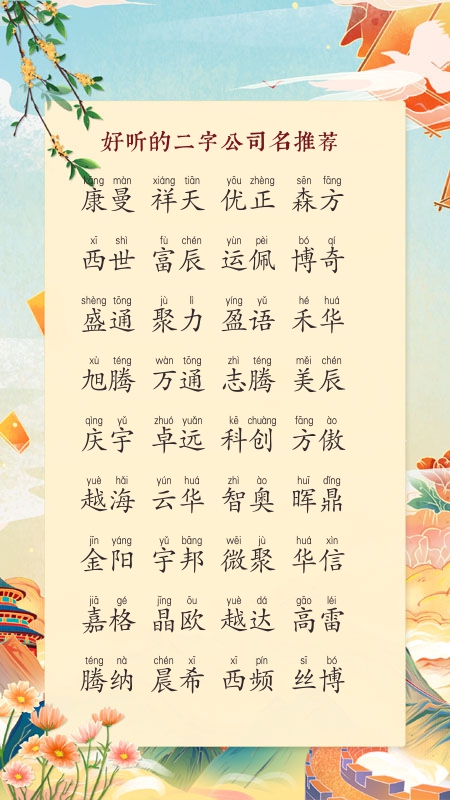 好听的二字公司名推荐
kāng màn xiáng tiān yōu zhèng sēn fāng
康曼 祥天 优正 森方
xī shì fù chén yùn pèi bó qí
西世 富辰 运佩 博奇
shèng tōng jù lì yíng yǔ hé huá
盛通 聚力 盈语 禾华
xù téng wàn tōng zhì téng měi chén
旭腾 万通 志腾 美辰
qìng yǔ zhuó yuǎn kē chuàng fāng ào
庆宇 卓远 科创 方傲
yuè hǎi yún huá zhì ào huī dǐng
越海 云华 智奥 晖鼎
jīn yáng yǔ bāng wēi jù huá xìn
金阳 宇邦 微聚 华信
jiā gé jīng ōu yuè dá gāo léi
嘉格 晶欧 越达 高雷
téng nà chén xī xī pín sī bó
腾纳 晨希 西频 丝博